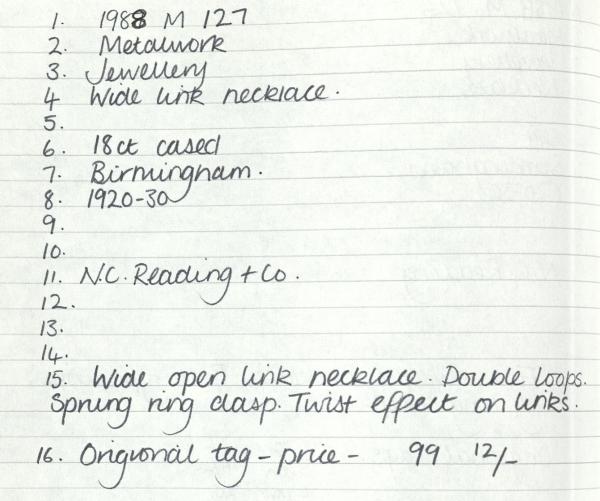 1. 1988 M 127
2. Metalwork
3. Jewellery
4 Wide link necklace.
5.
6. 18ct cased
7. Birmingham.
8. 1920-30
9.
10.
11. N.C. Reading + Co.
12.
13.
14.
15. Wide open link necklace. Double loops.
Sprung ring clasp. Twist effect on links.
16. Origional tag - price - 99 12/-